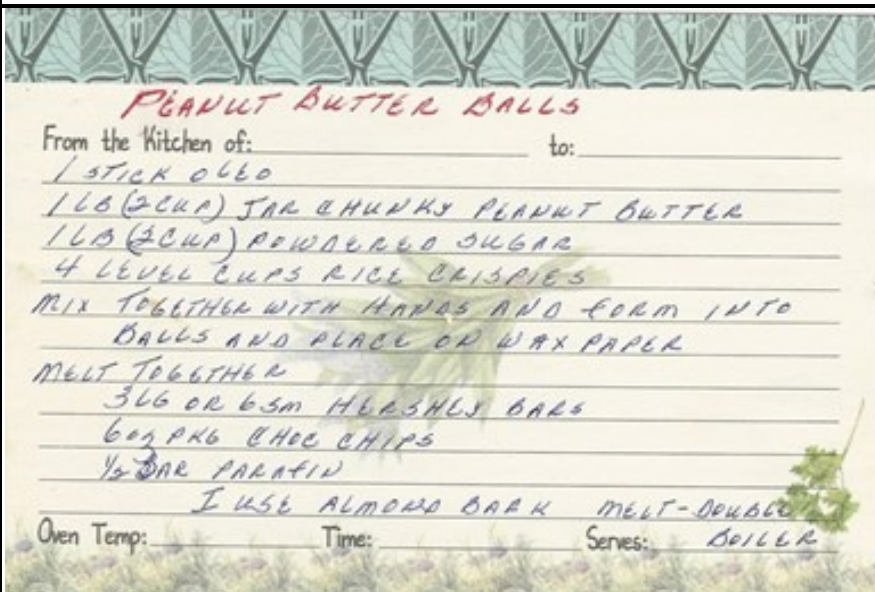 PEANUT BUTTER BALLS
From the Kitchen of: to:
1 STICK OLEO
1 LB (2 CUP) JAR CHUNKY PEANUT BUTTER
1 LB (2 CUP) POWDERED SUGAR
4 LEVEL CUPS RICE CRISPIES
MIX TOGETHER WITH HANDS AND FORM INTO
BALLS AND PLACE ON WAX PAPER
MELT TOGETHER
3 LG OR 6 SM HERSHEY BARS
6 oz PKG CHOC CHIPS
1/2 BAR PARAFIN
I USE ALMOND BARK MELT-DOUBLE
Oven Temp: Time: Serves: BOILER